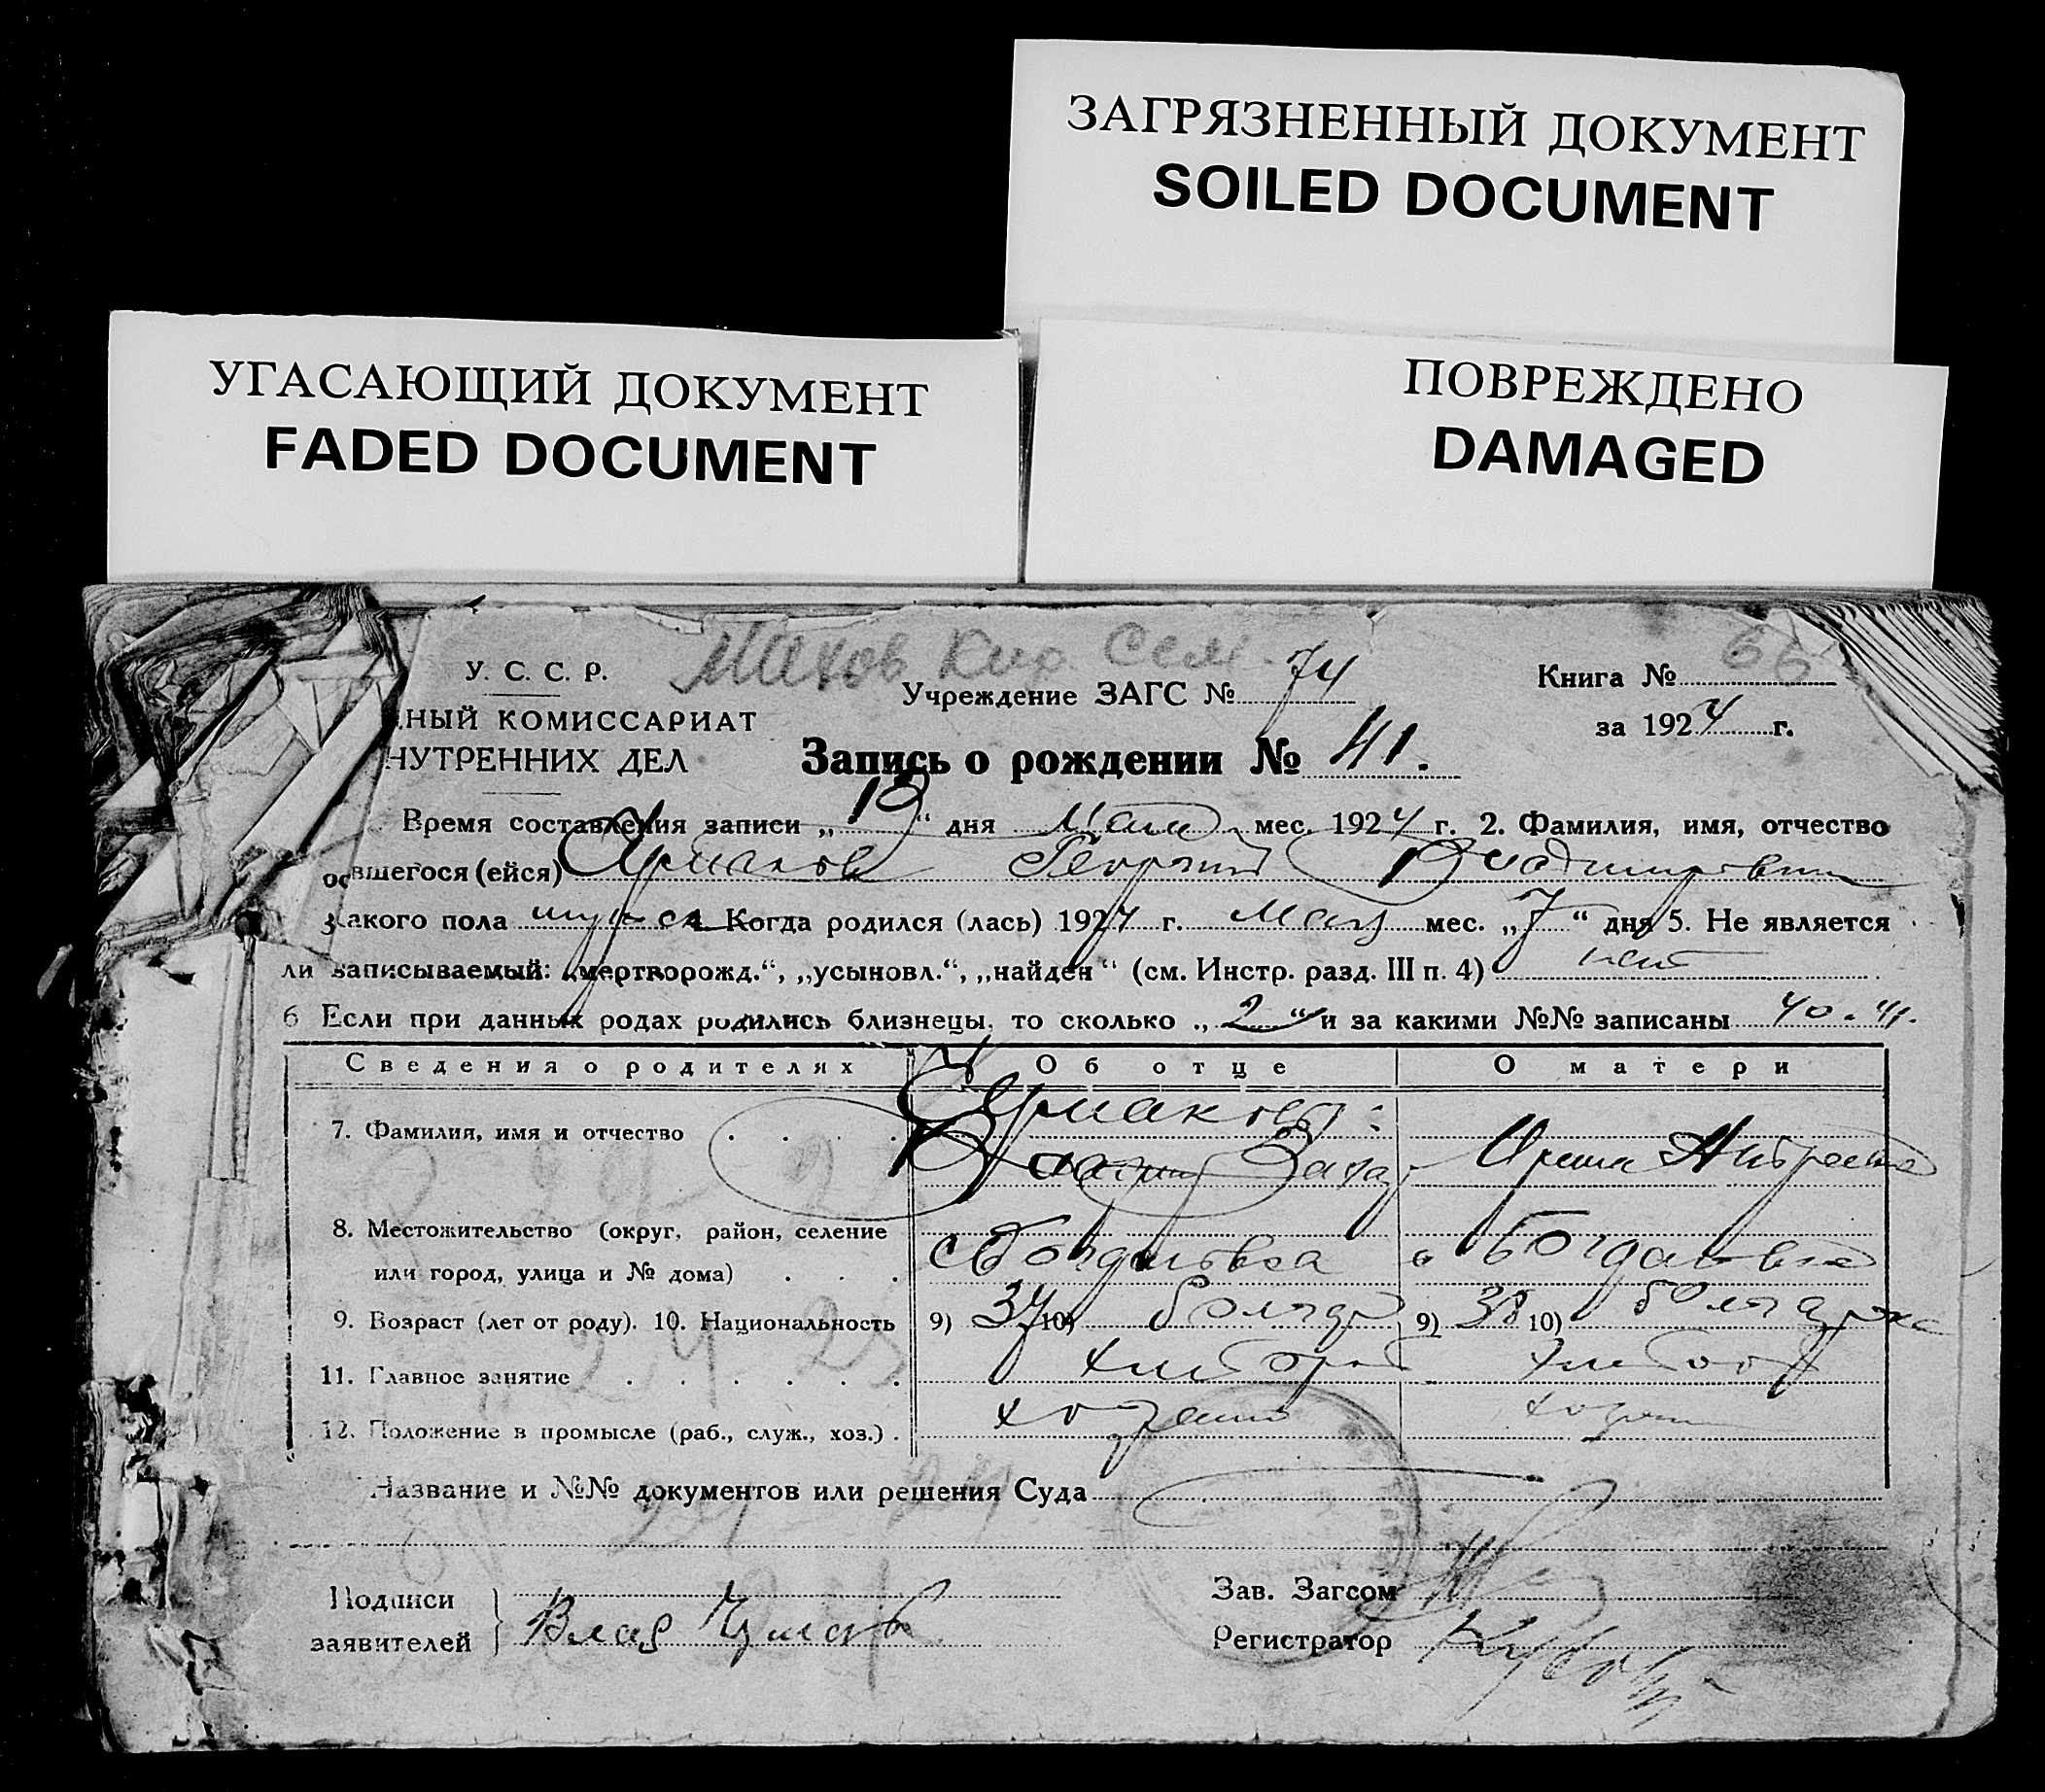 ЗАГРЯЗНЕННЫЙ ДОКУМЕНТ
SOILED DOCUMENT
УГАСАЮЩИЙ ДОКУМЕНТ
FADED DOCUMENT
ПОВРЕЖДЕНО
DAMAGED
Махов Кир. Сем.
У. С. С. Р.
Учреждение ЗАГС № 74
Книга № 66
НЫЙ КОМИССАРИАТ
за 1924 г.
НУТРЕННИХ ДЕЛ
Запись о рождении № 41.
Время составления записи „ “ дня Мая мес. 1924 г. 2. Фамилия, имя, отчество
вшегося (ейся) Георгий Владимирович
какого пола мужск. Когда родился (лась) 1924 г. Мая мес. „7“ дня 5. Не является
ли записываемый: „мертворожд.“, „усыновл.“, „найден“ (см. Инстр. разд. III п. 4) нет
6 Если при данных родах родились близнецы, то сколько „2“ и за какими №№ записаны 40. 41.
Сведения о родителях Об отце О матери
7. Фамилия, имя и отчество
8. Местожительство (округ, район, селение
или город, улица и № дома) с Богдановка с Богдановка
9. Возраст (лет от роду). 10. Национальность 9) 37 10) болгар 9) 38 10) болгарка
11. Главное занятие хлебороб хлебороб
12. Положение в промысле (раб., служ., хоз.) . хозяин
Название и №№ документов или решения Суда
Подписи
заявителей Влад
Зав. Загсом
Регистратор